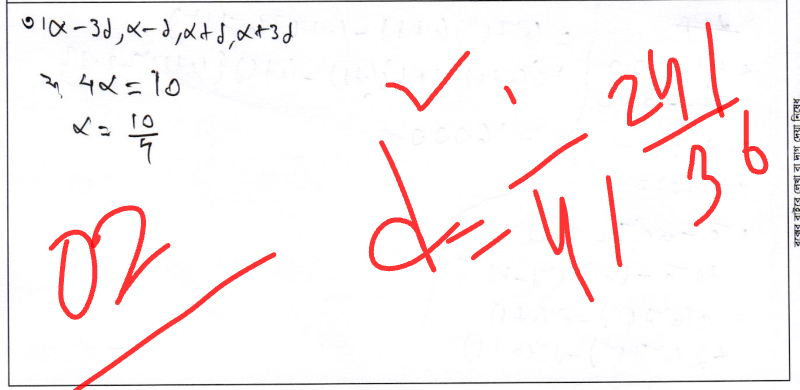 ৩। α-3d, α-d, α+d, α+3d
⇒ 4α = 10
α = 10/4
02
d =
241
36
41
বক্সের বাইরে লেখা বা দাগ দেয়া নিষেধ